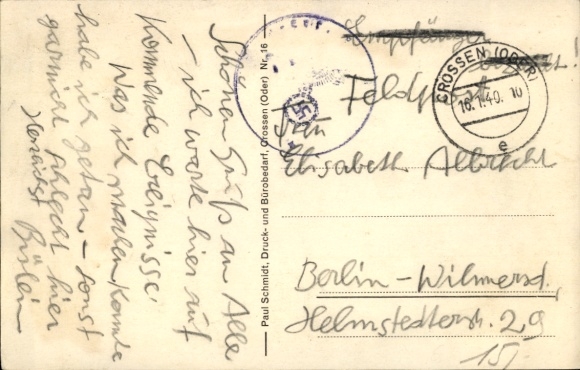 Schönen Gruß an Alle
– ich warte hier auf
Kommende Ereignisse
Was ich machen konnte
habe ich getan – sonst
garnicht schlecht hier
Herzlichst
Paul Schmidt, Druck- und Bürobedarf, Crossen (Oder) Nr. 16
Empfänger
Feldpost
CROSSEN (ODER)
16.1.40. 10
e
Frau
Elisabeth Albrecht
Berlin – Wilmersd.
Helmstedterstr. 29
15